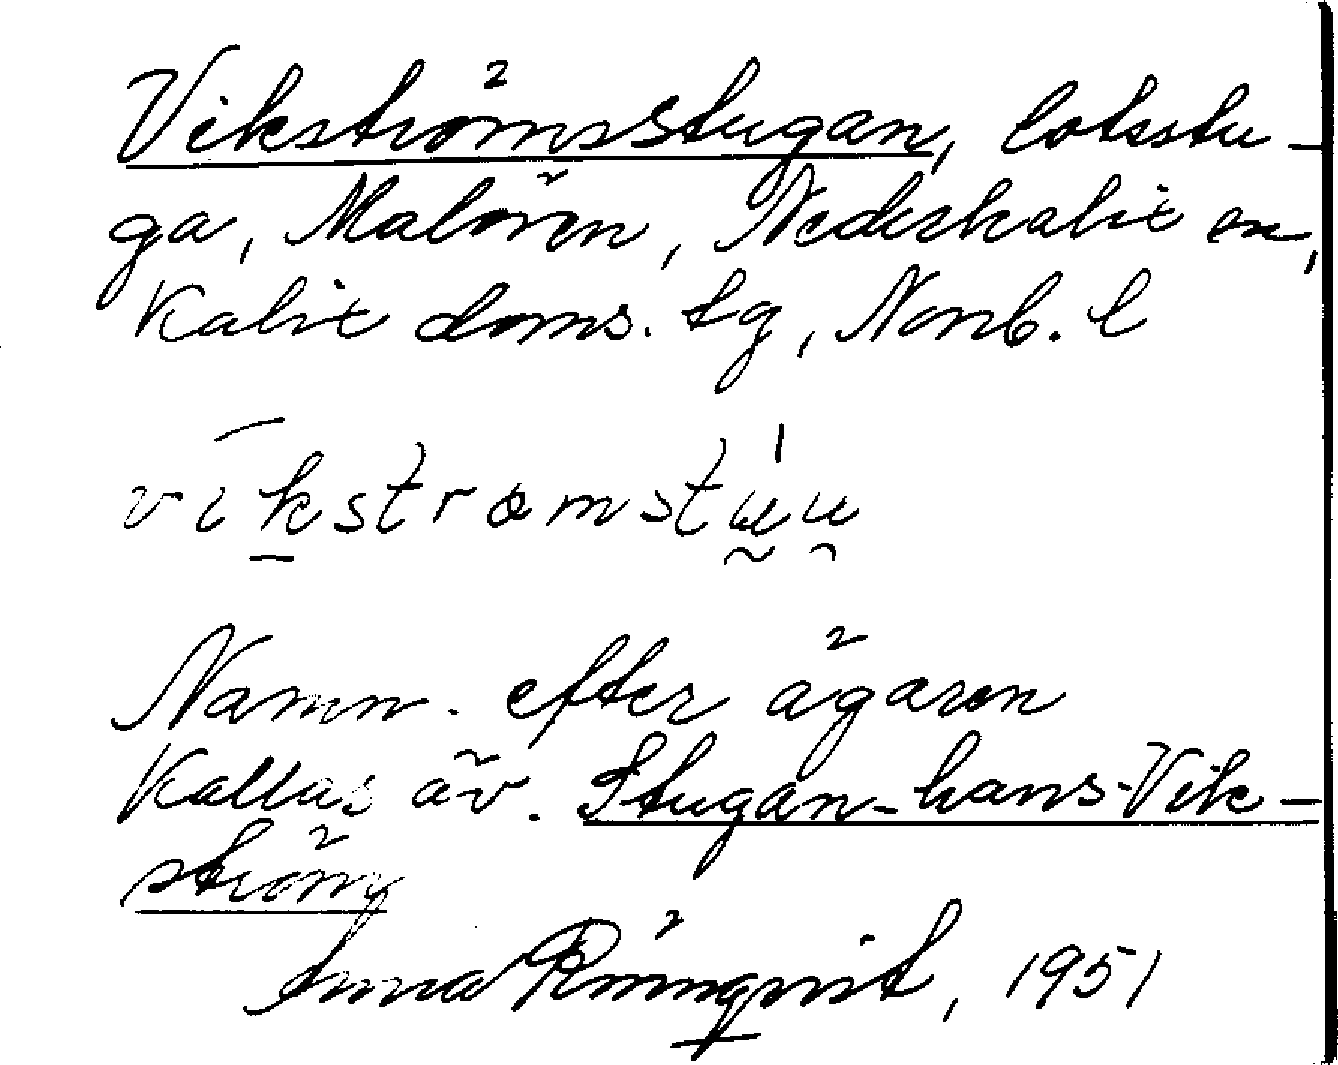 Vikströmsstugan, lotsstu-
ga, Malören, Nederkalix sn,
Kalix doms. tg, Norrb. l
vikstromstuu
Namn. efter ägaren
Kallas äv. Stugan-hans-Vik-
ström
Anna Rönnqvist, 1951